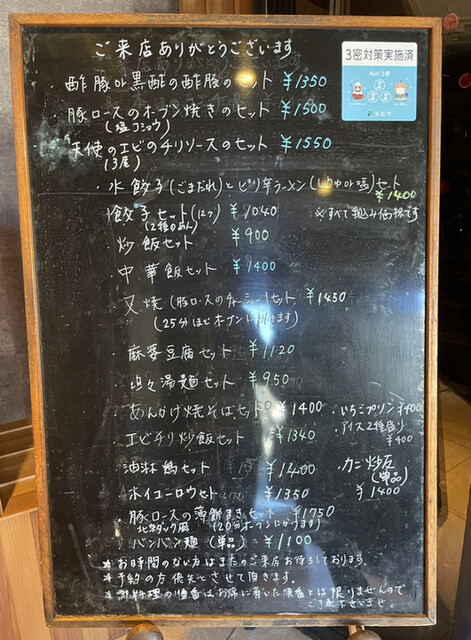 ご来店ありがとうございます
3密対策実施済
No! 3密
浜松市
・酢豚or黒酢の酢豚のセット ¥1350
・豚ロースのオーブン焼きのセット ¥1500
(塩コショウ)
・天使のエビのチリソースのセット ¥1550
(3尾)
・水餃子(ごまだれ)とピリ辛ラーメン(しょうゆor塩)セット
¥1400
・餃子セット(12ヶ) ¥1040
(2種のあん)
※すべて税込み価格です
・炒飯セット ¥900
・中華飯セット ¥1400
・叉焼(豚ロースのチャーシュー)セット ¥1450
(25分ほどオーブンに入ります)
・麻婆豆腐セット ¥1120
・坦々湯麺セット ¥950
・あんかけ焼そばセット ¥1400
・いちごプリン ¥400
・アイス2種盛り
¥400
・エビチリ炒飯セット ¥1340
・カニ炒飯
(単品)
¥1400
・油淋鶏セット ¥1400
・ホイコーロウセット ¥1350
・豚ロースの薄餅まきセット ¥1750
北京ダック風 (20分オーブンにかけます)
・バンバン麺(単品) ¥1100
※お時間のない方はまたのご来店お待ちしております。
※予約の方優先とさせて頂きます。
※お料理の順番はお席に着いた順番とは限りませんので
ご了承下さいませ。